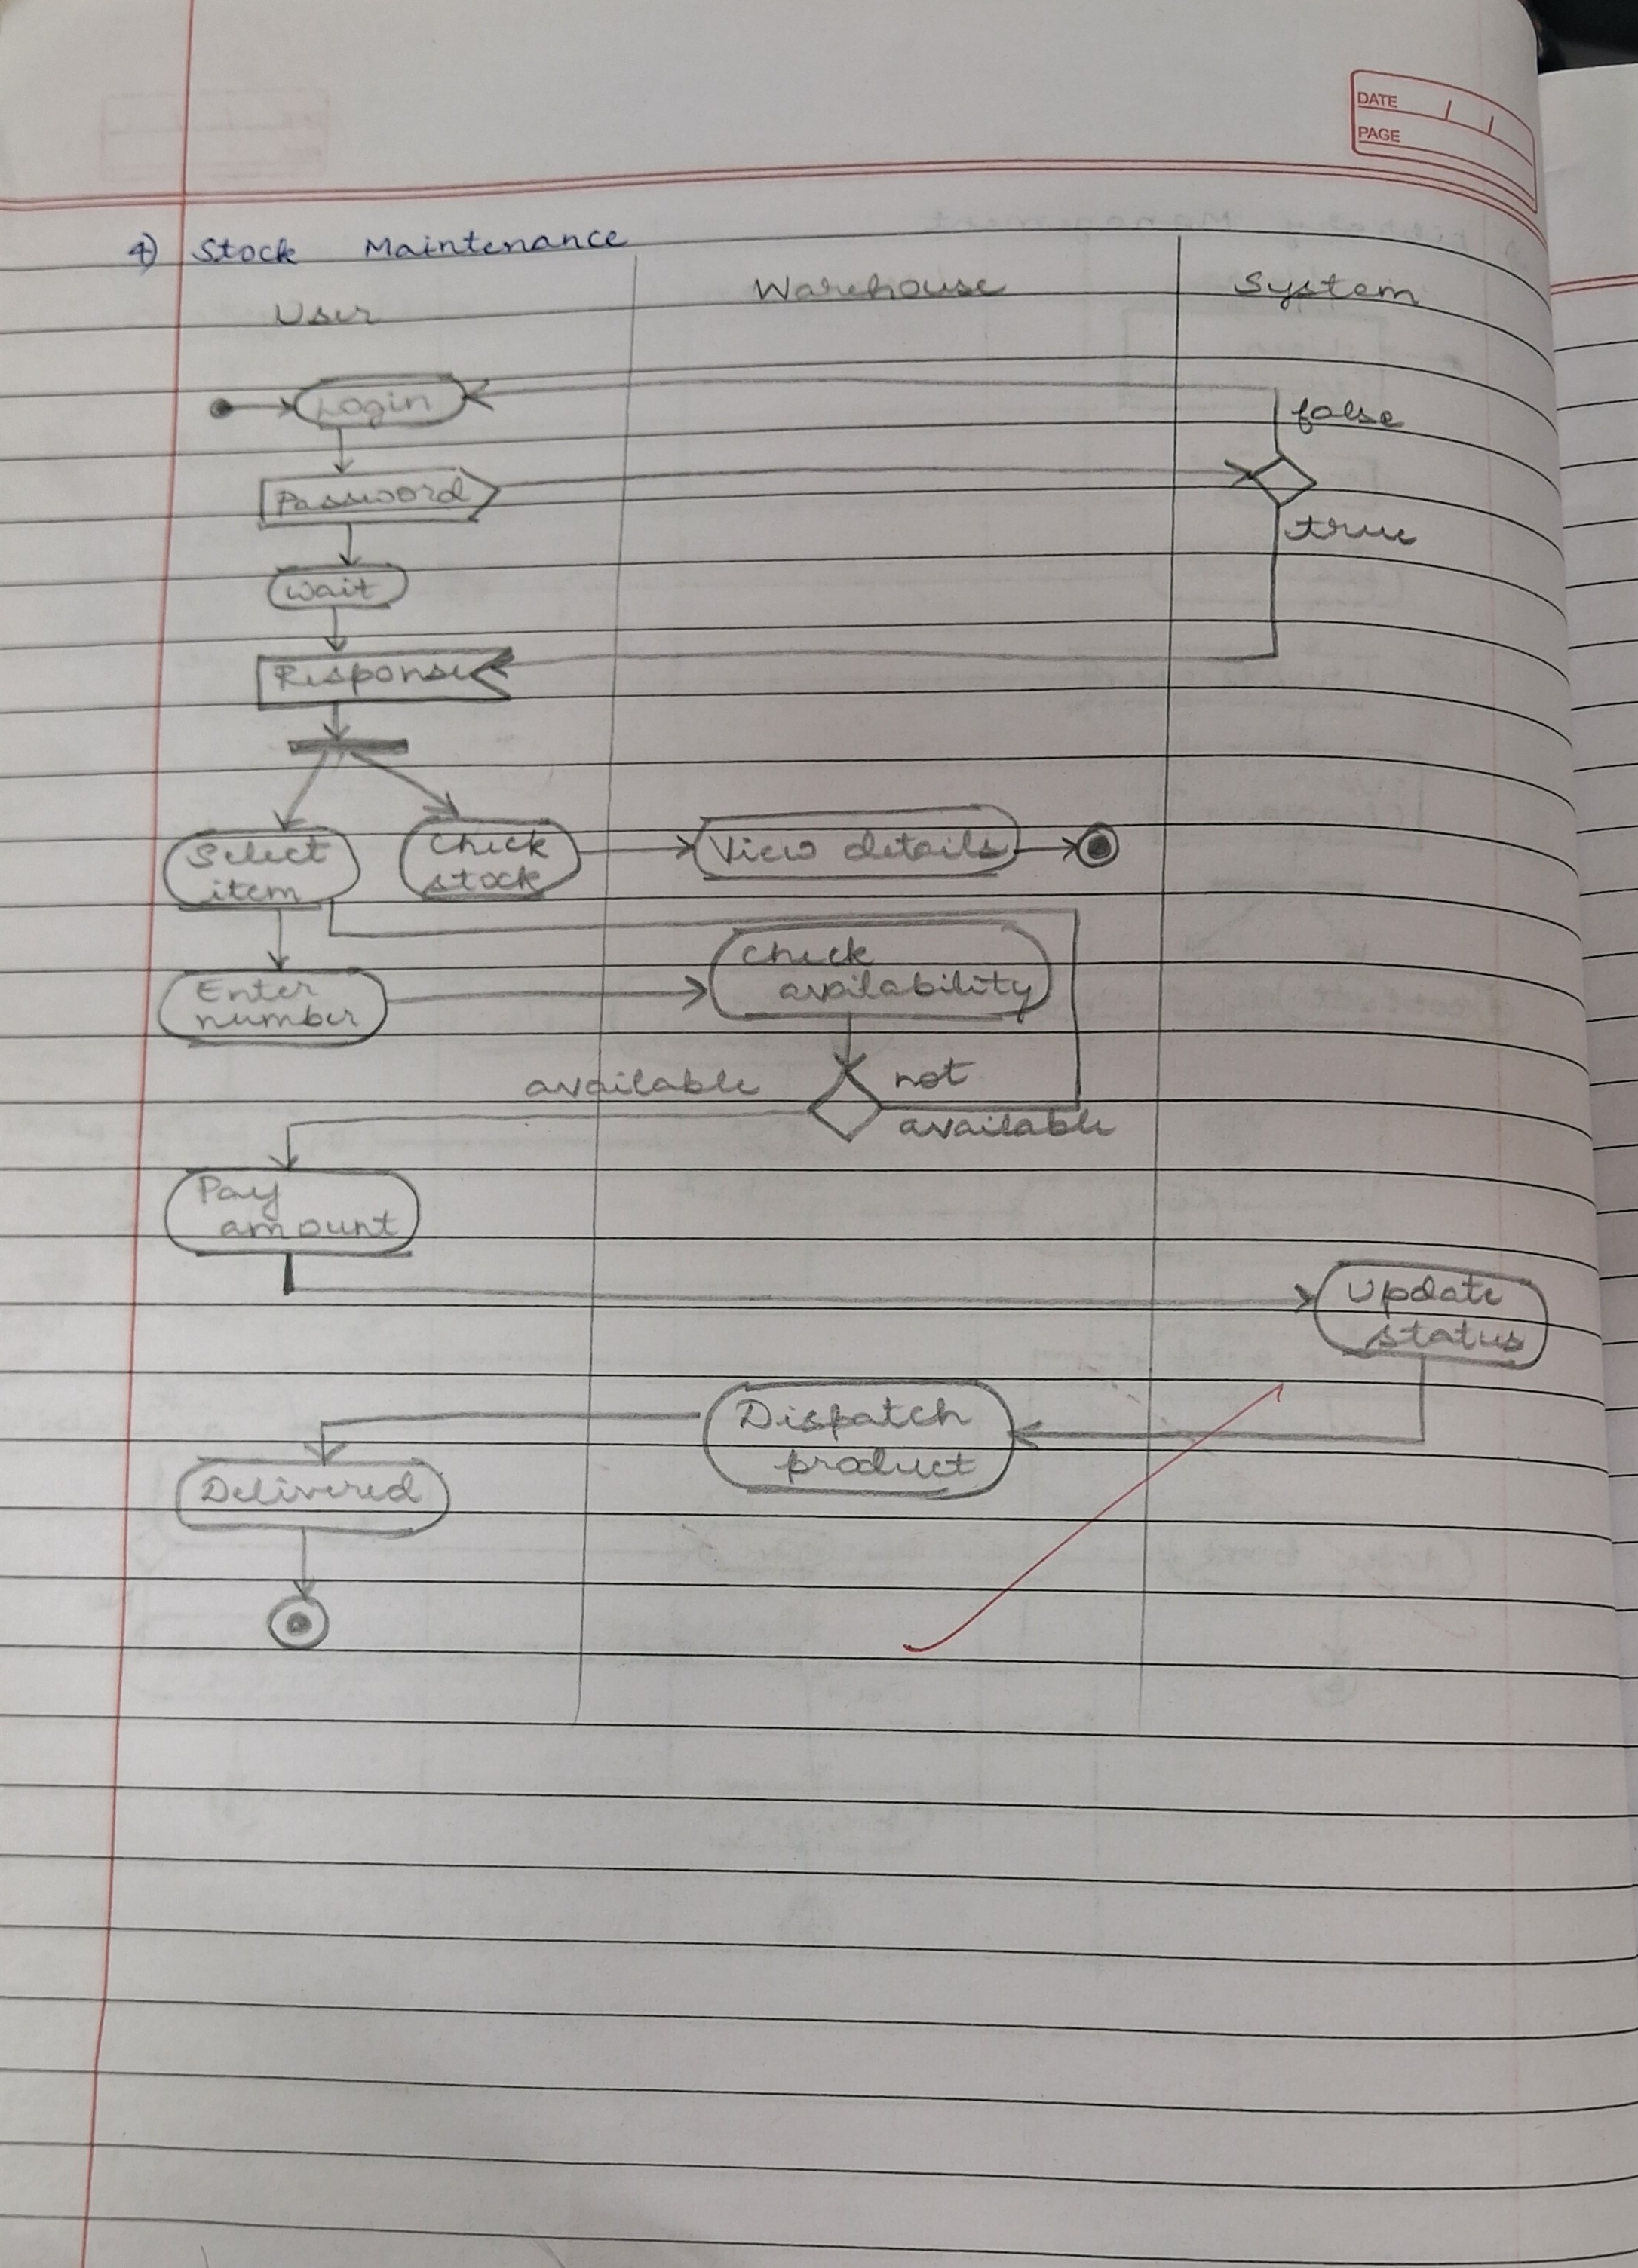 DATE
PAGE
4) Stock Maintenance
User
Warehouse
System
Login
false
Password
true
wait
Response
Select
item
Check
stock
View details
Enter
number
Check
availability
available
not
available
Pay
amount
Update
status
Dispatch
product
Delivered